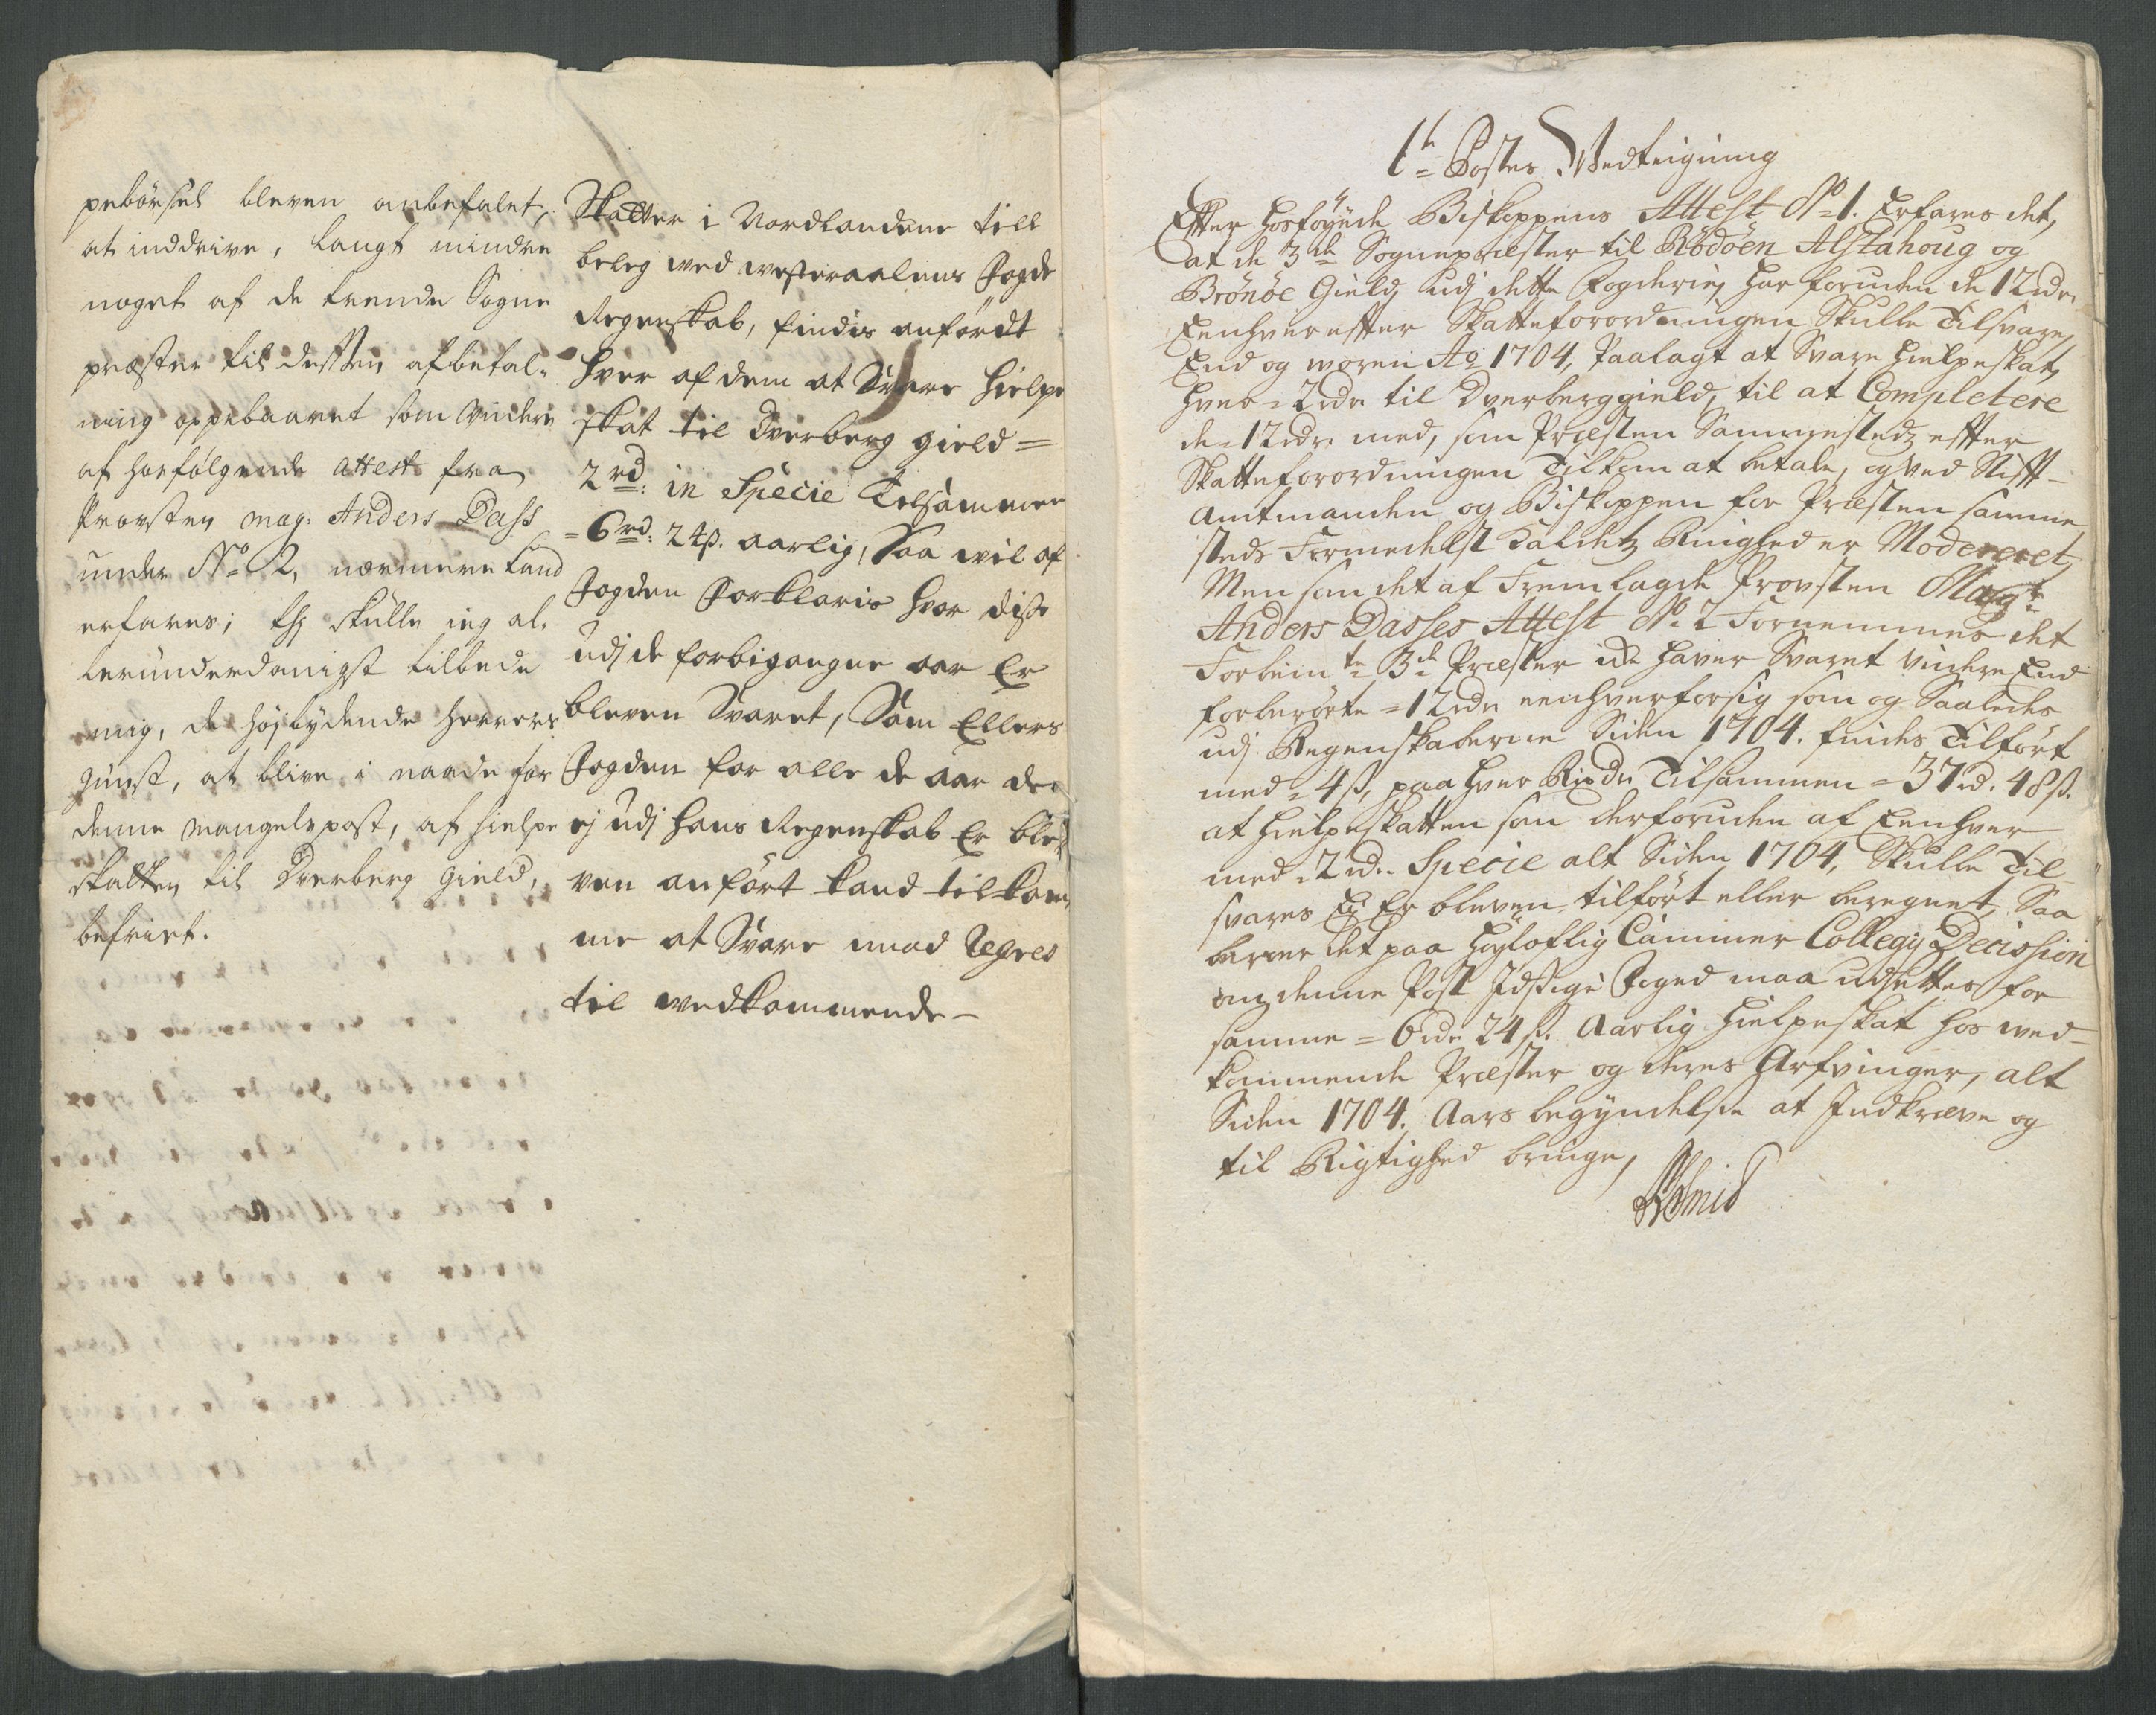 pebörsel bleven anbefalet,
at inddrive, langt mindre
noget af de trende Sogne
præster til dessen afbetal-
ning oppebaaret som videre
af hosfølgende Attest fra
Provsten mag: Anders Dass
under No 2, nærmere kand
erfares; thj skulle ieg al-
lerunderdanigst tilbede
mig, de højbydende herrers
gunst, at blive i naade for
denne mangels post, af hielpe
skatten til Dverberg gield,
befriet.
Skatter i Nordlandene till
beleg med westeraalens Fogde
Regenskab, findis anfördt
hver af dem at Svare hielpe
skat til Dverberg gield =
2 rd: in Specie Tilsammen
= 6 rd: 24 β. aarlig, Saa vil af
Fogden Forklaris hvor disse
udj de forbigangne aar Er
bleven Svaret, Som Ellers
Fogden for alle de aar de
ej udj hans Regenskab Er ble-
ven anfört kand tilkom-
me at Svare mod Regres
til wedkommende -
1te Postes Vedteigning
Efter hosföyede Biskoppens Attest No 1. Erfares det,
at de 3de Sognepræster til Rödöen Alstahoug og
Brönöe Gield, udj dette Fogderie, har foruden de 12 rdr
Eenhver effter Skatteforordningen Skulle Tilsvare,
End og woren Ao 1704, Paalagt at Svare hielpeskat,
hver = 2 rdr til Dverberggield, til at Completere
de = 12 rdr: med, som Præsten Sammestedz effter
Skatteforordningen Tilkom at betale, og ved Stifft-
amtmanden og Biskoppen for Præsten samme
steds Formedelst Kaldetz Ringhed er Modereret,
Men som det af Fremlagde Provsten Magr
Anders Dasses Attest No 2 Fornemmes det
Forbemte 3de Præster icke haver Svaret videre End
forberörte = 12 rdr eenhver for sig som og Saaledes
udj Regenskaberne Siden 1704. findes Tilfört
med = 4 β, paa hver Rixdr Tilsammen = 37 rd. 48 β.
at hielpeskatten som derforuden af Eenhver
med = 2 rd. Specie alt Siden 1704, Skulle Til-
svares Ei Er bleven tilfört eller beregnet, Saa
beroer det paa Höyloflig Cammer Collegij Decission
om denne Post Idstige Foged maa udsettes for
samme = 6 rdr 24 β. Aarlig hielpeskat hos ved-
kommende Præster og deres Arfvinger, alt
Siden 1704. Aars begyndelse at Indkræve og
til Rigtighed bringe,